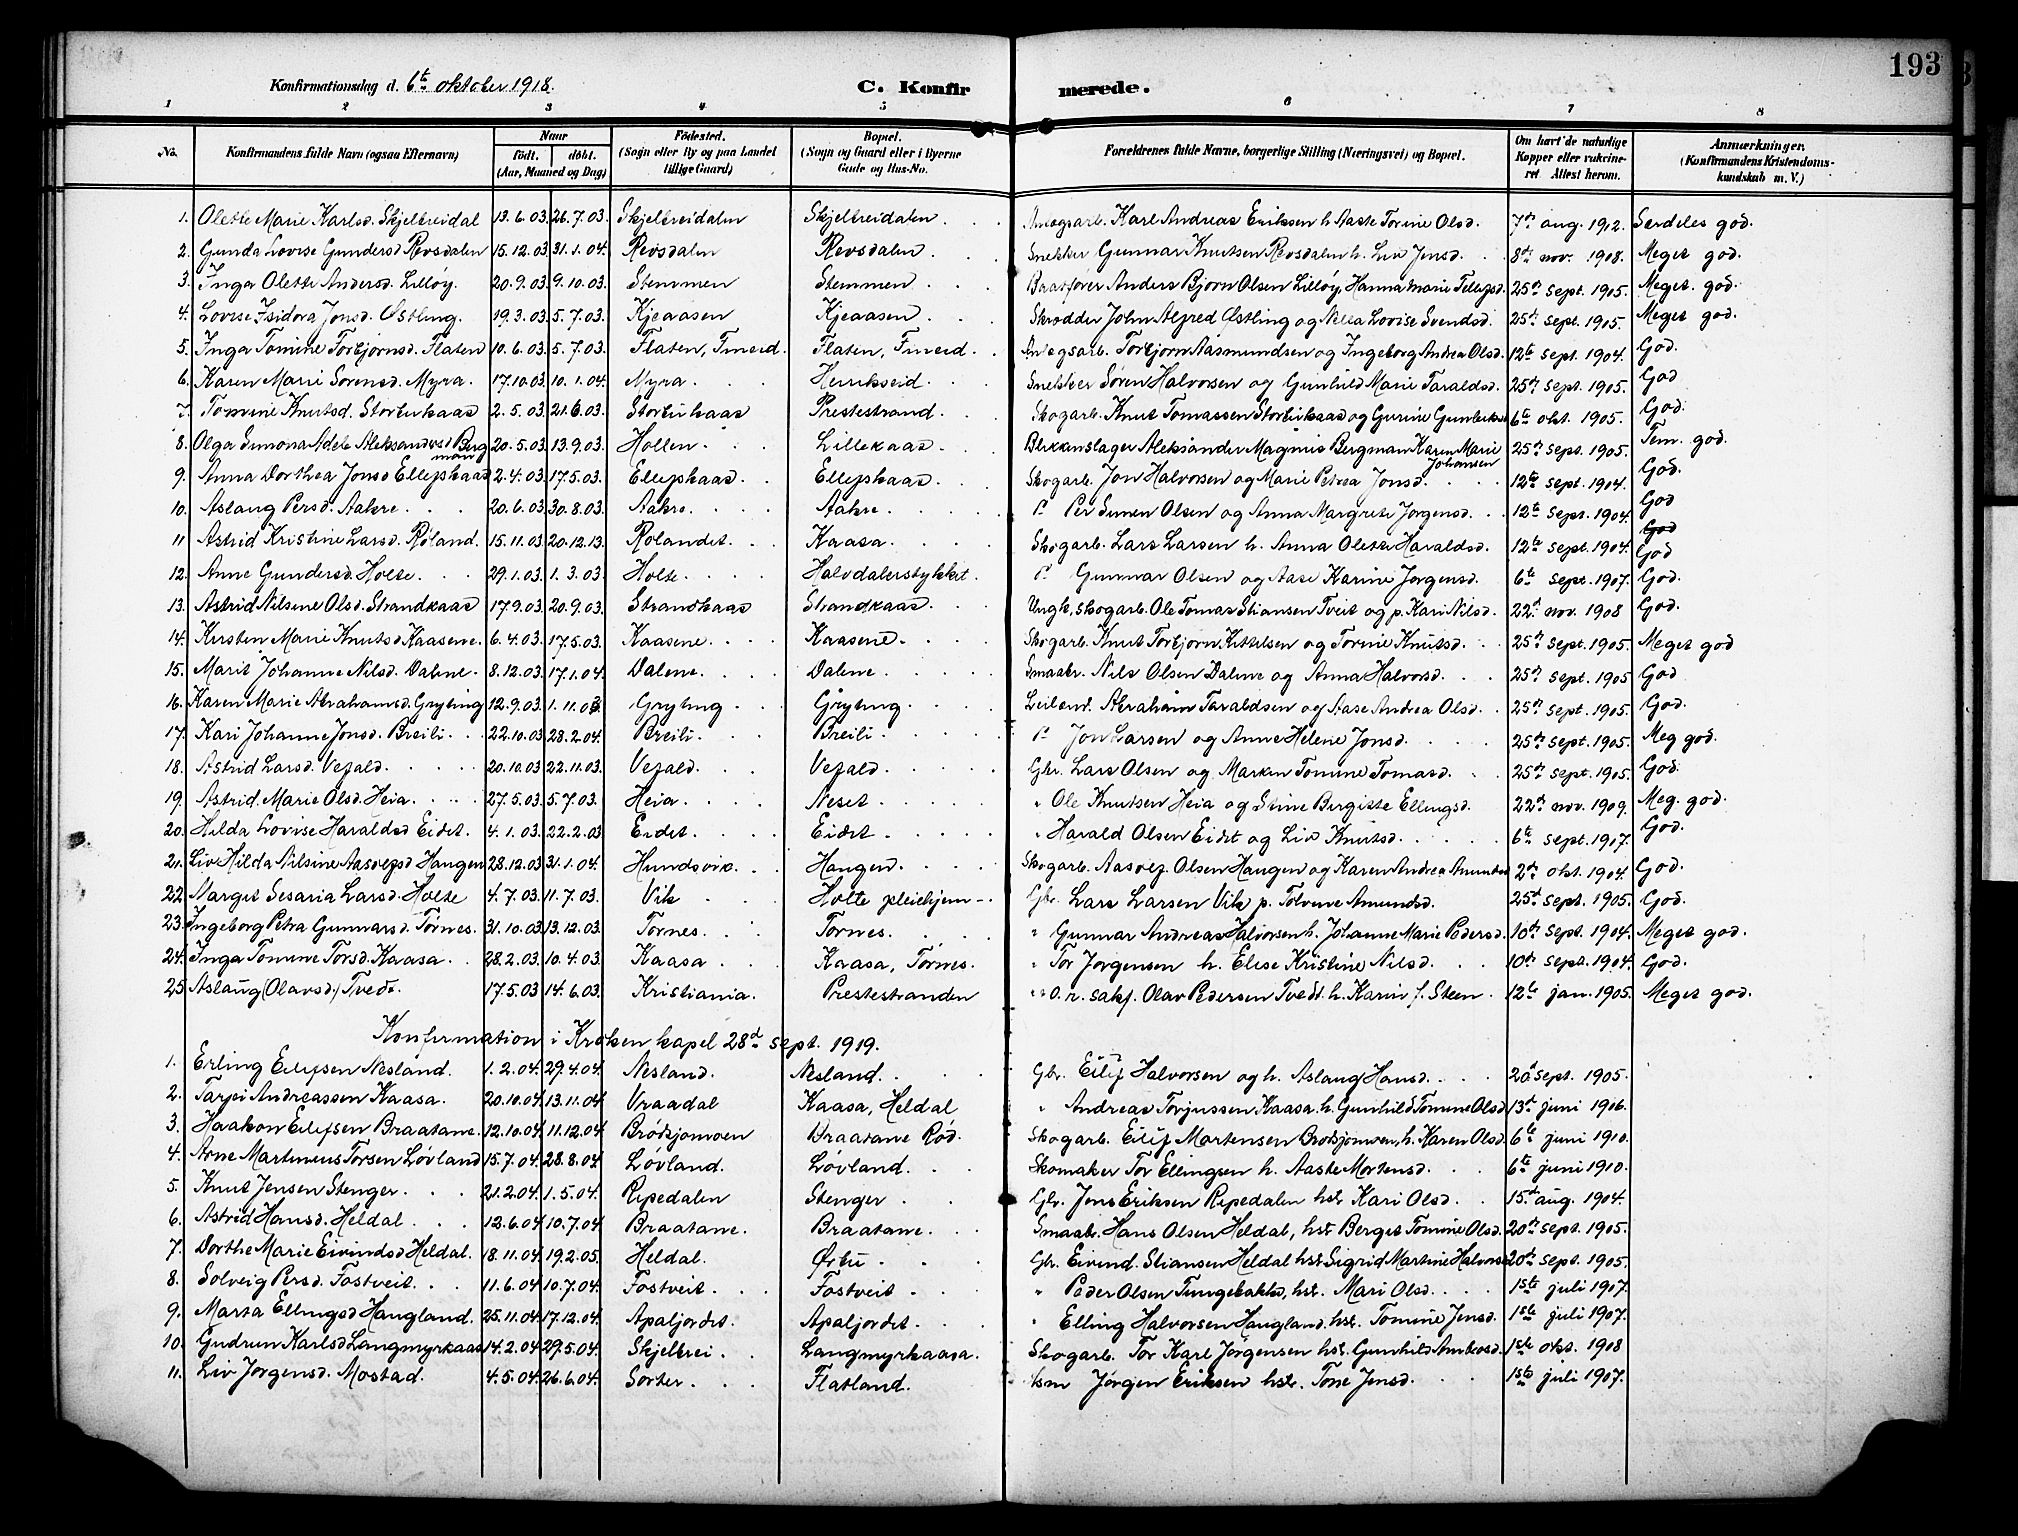 193
Konfirmationsdag d. 6te oktober 1918. C. Konfirmerede.
1 2 3 4 5 6 7 8
No. Konfirmandens fulde Navn (ogsaa Efternavn) Naar født. døbt. (Aar, Maaned og Dag) Fødested. (Sogn eller By og paa Landet tillige Gaard) Bopæl. (Sogn og Gaard eller i Byerne Gade og Hus-No. Forældrenes fulde Navne, borgerlige Stilling (Næringsvei) og Bopæl. Om havt de naturlige Kopper eller vakcineret Attest herom. Anmærkninger. (Konfirmandens Kristendomskundskab m. V.)
1. Olette Marie Karlsd. Skjelbreidal 13.6.03. 26.7.03. Skjelbreidalen Skjelbreidalen Anlægsarb. Karl Andreas Eriksen h. Aaste Torine Olsd. 7de aug. 1912. Særdeles god.
2. Gunda Lovise Gundersd Revsdalen 15.12.03 31.1.04. Revsdalen Revsdalen Snekker Gunnar Knutsen Revsdalen h. Liv Jensd. 8de nov. 1908. Meget god.
3. Inga Olette Andersd. Lilløy. 20.9.03 9.10.03 Stemmen Stemmen Baatfører Anders Bjørn Olsen Lilløy, Hanna Marie Tellefsd. 25de sept. 1905. Meget god.
4. Lovise Isidora Jonsd. Østling. 19.3.03. 5.7.03. Kjeaasen Kjeaasen Skrædder John Alfred Østling og Nilla Lovise Svendsd. 25de sept. 1905. Meget god.
5. Inga Tomine Torbjørnsd. Flaten 10.6.03. 5.7.03. Flaten, Tineid. Flaten, Tineid. Anlægsarb. Torbjørn Aasmundsen og Ingeborg Andrea Olsd. 12te sept. 1904. God.
6. Karen Marie Sørensd. Myra. 17.10.03. 10.1.04. Myra. Henrikseid. Snekker Søren Halvorsen og Gunhild Marie Taraldsd. 25de sept. 1905. God
7. Tomine Knutsd. Storbukaas 2.5.03. 21.6.03. Storbukaas Prestestrand. Skogarb. Knut Tomassen Storbukaas og Gurine 6te okt. 1905. God.
8. Olga Simona Adele Aleksandersd Bergman 20.5.03 13.9.03. Hollen. Lillekaas. Blikkenslager Aleksander Magnus Bergman Karen Marie Johansen 25de sept. 1905. Tem. god.
9. Anna Dorthea Jonsd Ellefskaas 2.4.03. 17.5.03. Ellefskaas. Ellefskaas. Skogarb. Jon Halvorsen og Marie Petrea Jonsd. 12te sept. 1904. God.
10. Aslaug Persd. Aakre. 20.6.03 30.8.03. Aakre. Aakre. Per Simen Olsen og Anna Margrete Jørgensd. 12te sept. 1904. God
11 Astrid Kristine Larsd. Røland. 15.11.03 20.12.13. Rølandet. Kaasa. Skogarb. Lars Larsen h. Anna Olette Haraldsd. 12te sept. 1904. God God
12. Anne Gundersd. Holte. 29.1.03 1.3.03. Holte. Halvdalerstykket. Gunnar Olsen og Aase Karine Jørgensd. 6te sept. 1907. God.
13. Astrid Nilsine Olsd. Strandkaas 17.9.03. 20.9.03. Strandkaas Strandkaas. Ungk. skogarb. Ole Tomas Stiansen Tveit og p. Kari Nilsd. 22de nov. 1908 God.
14. Kirsten Marie Knutsd Kaasene. 6.4.03. 17.5.03. Kaasene. Kaasene. Skogarb. Knut Torbjørn Kittelsen og Torine Knutsd. 25de sept. 1905. Meget god
15. Marit Johanne Nilsd. Dalene. 8.12.03. 17.1.04. Dalene. Dalene. Smaabr. Nils Olsen Dalene og Anna Halvorsd. 25de sept. 1905 God
16. Karen Marie Abrahamsd. Gryting 12.9.03. 1.11.03 Gryting Gryting. Leilend. Abraham Taraldsen og Aase Andrea Olsd. 25de sept. 1905. God.
17. Kari Johanne Jonsd. Breili. 22.10.03 28.2.04. Breili. Breili. Jon Larsen og Anne Helene Jonsd. 25de sept. 1905. Meg god.
18. Astrid Larsd. Vefald. 20.10.03 22.11.03. Vefald. Vefald. Gbr. Lars Olsen og Maren Tomine Tomasd. 25de sept. 1905. God.
19. Astrid Marie Olsd. Heia. 27.5.03 5.7.03. Heia. Neset. " Ole Knutsen Heia og Stine Bergitte Ellingsd. 22de nov. 1909. Meg. god.
20. Hilda Lovise Haraldsd Eidet. 4.1.03. 22.2.03 Eidet. Eidet. " Harald Olsen Eidet og Liv Knutsd. 6te sept. 1907. God.
21. Liv Hilda Nilsine Aasolfsd Haugen 28.12.03 31.1.04. Hundsvik. Haugen. Skogarb. Aasolf Olsen Haugen og Karen Andrea 2de okt. 1904 God.
22. Margit Sesaria Larsd. Holte 4.7.03. 11.7.03. Vik Holte pleiehjem. Gbr. Lars Larsen Vik p. Tolvine Amundsd. 25de sept. 1905. God.
23. Ingeborg Petra Gunnarsd. Tørnes. 31.10.03 13.12.03. Tørnes. Tørnes. " Gunnar Andreas Halvorsen h. Johanne Marie Pedersd. 10de sept. 1904. Meget god.
24. Inga Tomine Torsd. Kaasa. 28.2.03 10.4.03. Kaasa. Kaasa, Tørnes. " Tor Jørgensen h. Elise Kristine Nilsd. 10de sept. 1904. God.
25 Aslaug (Olavsd.) Tvedt. 17.5.03 14.6.03. Kristiania. Prestestranden o.r. sakf. Olav Pedersen Tvedt h. Karin f. Steen. 12te jan. 1905. Meget god.
Konfirmation i Kroken kapel 28de sept. 1919.
1. Erling Eilefsen Nesland. 1.2.04. 29.4.04. Nesland. Nesland. Gbr. Eilif Halvorsen og h. Aslaug Hansd. 20de sept. 1905.
2. Tarjei Andreassen Kaasa. 20.10.04 13.11.04 Vraadal Kaasa, Heldal " Andreas Torjussen Kaasa. h. Gunhild Tomine Olsd 13de juni 1906.
3. Haakon Eilefsen Braatane. 12.10.04. 11.12.04 Brødsjømoen Braatane Rød. Skogarb. Eilif Martensen Brødsjømoen, h. Karen Olsd 6te juni 1910.
4. Arne Martinius Torsen Løvland 15.7.04. 28.8.04. Løvland. Løvland. Skomaker Tor Ellingsen h. Aaste Mortensd. 6te juni 1910.
5. Knut Jensen Stenger. 21.2.04. 1.5.04. Ripedalen Stenger Gbr. Jens Eriksen Ripedalen hst. Kari Olsd. 15de aug. 1904.
6. Astrid Hansd. Heldal. 12.6.04. 10.7.04 Braatane. Braatane. Smaabr. Hans Olsen Heldal, hst. Berget Tomine Olsd. 20de sept. 1905.
7. Dorthe Marie Eivindsd Heldal. 18.11.04. 19.2.05. Heldal. Ørbu Gbr. Eivind Stiansen Heldal hst Sigrid Martine Halvorsd 20de sept. 1905.
8. Solveig Persd. Tostveit. 11.6.04 10.7.04. Tostveit. Tostveit. " Peder Olsen Tungebakke, hst. Mari Olsd. 1ste juli 1907.
9. Marta Ellingsd Haugland. 25.11.04. 17.12.04. Apaljordet. Apaljordet. " Elling Halvorsen Haugland hst. Tomine Jensd. 1ste juli 1907.
10. Gudrun Karlsd Langmyrkaas 14.2.04 29.5.04. Skjelbrei. Langmyrkaasa. Skogarb. Tor Karl Jørgensen hst. Gunhild 1ste okt. 1908
11. Liv Jørgensd. Mostad. 4.5.04. 26.6.04. Sorter. Flatland. Jørgen Eriksen hst. Tone Jensd. 1ste juli 1907.